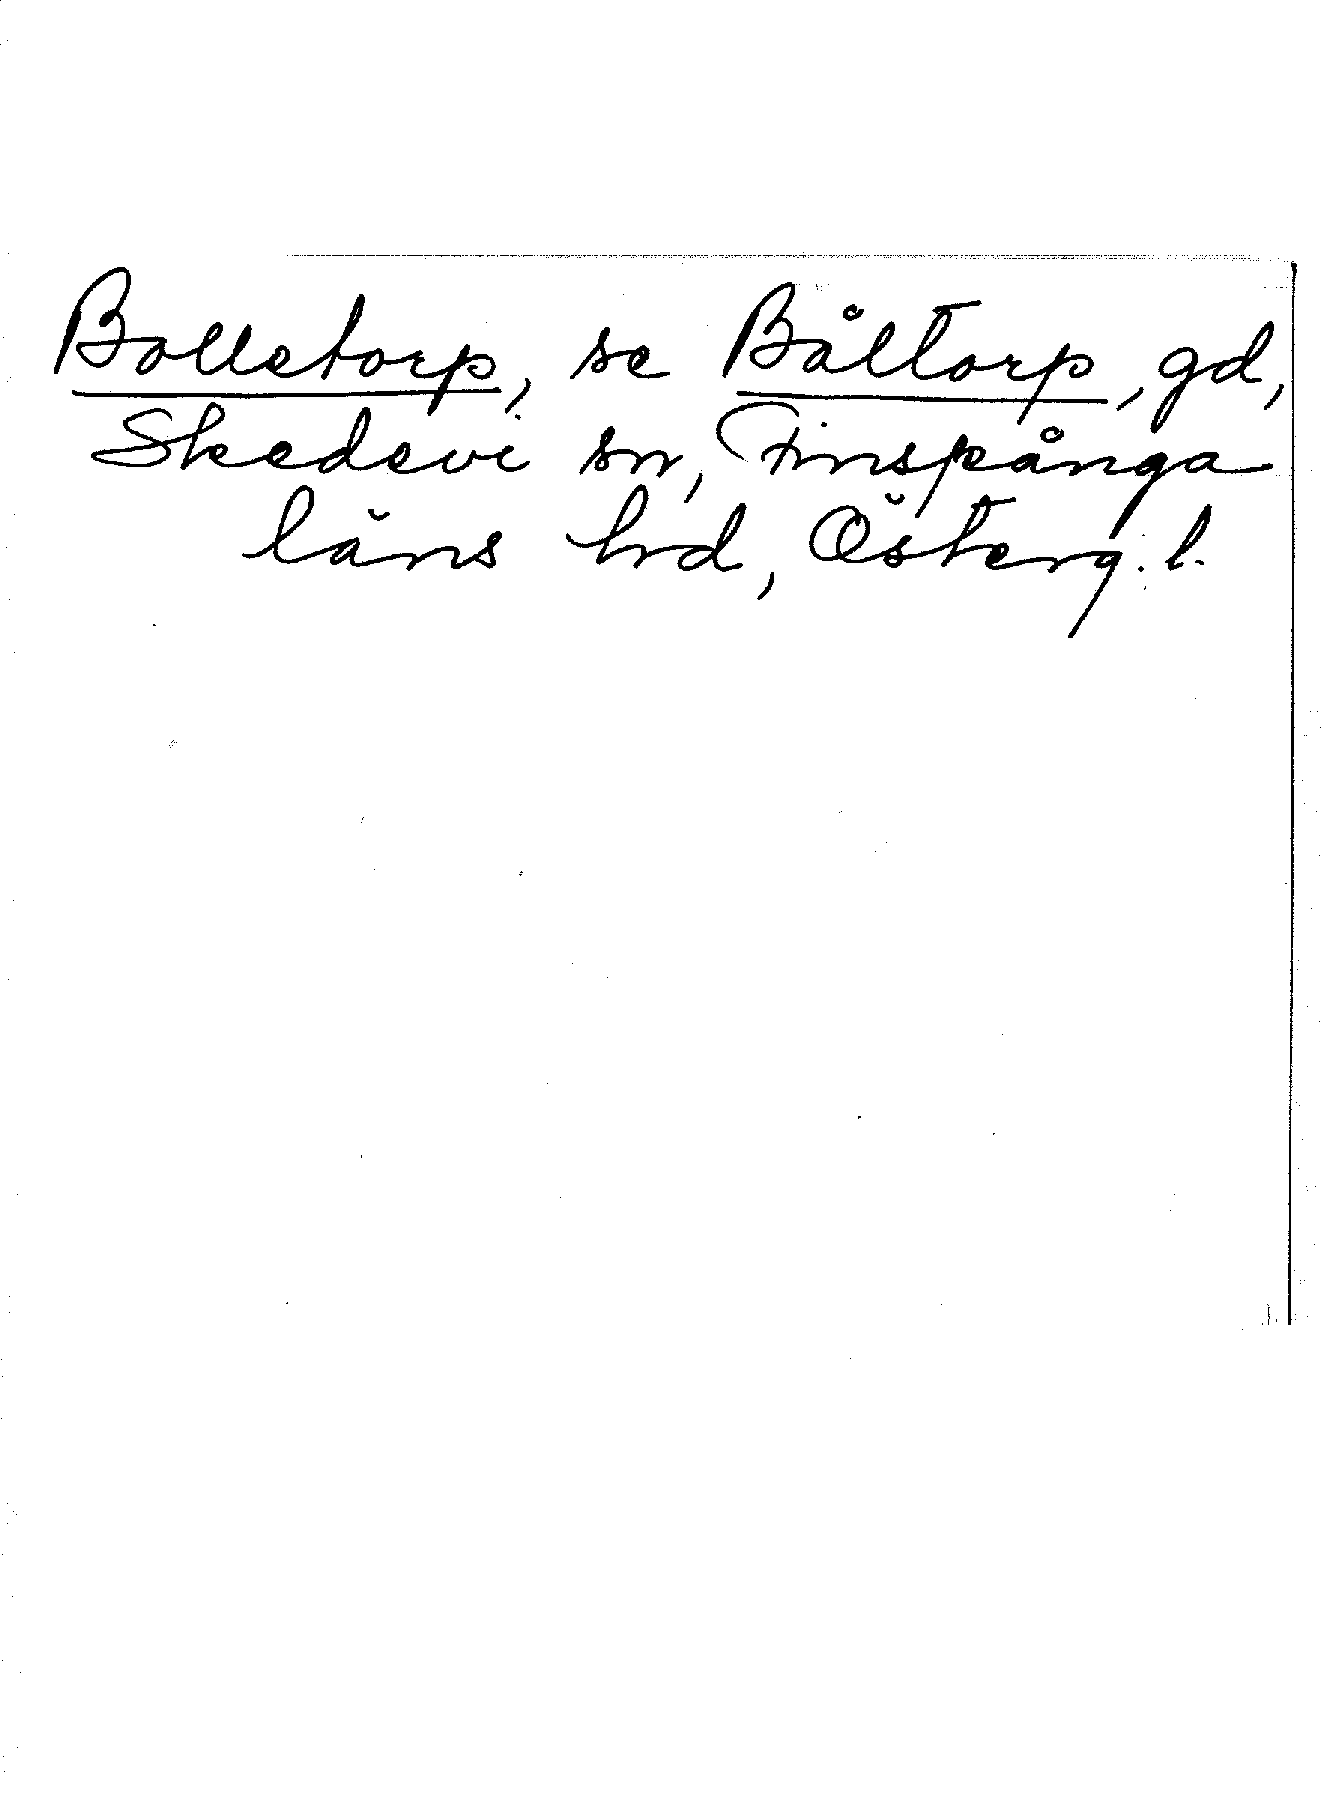 Bolletorp, se Båltorp, gd,
Skedevi sn, Finspånga
läns hd, Österg. l.